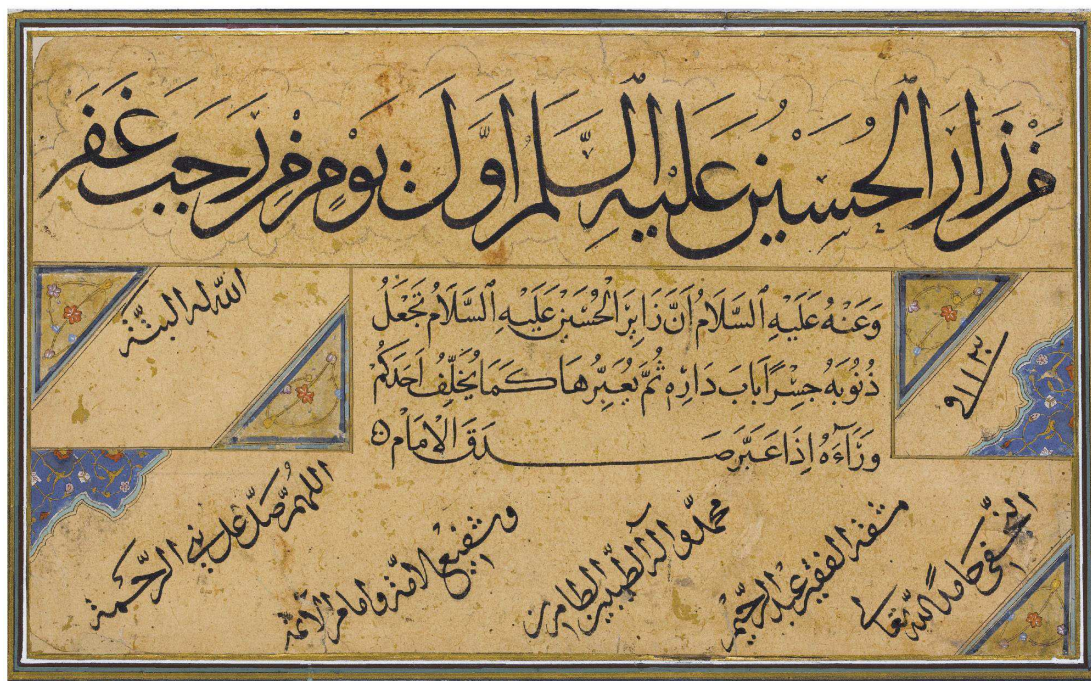 مَن زَارَ الْحُسَيْنَ عَلَيْهِ السَّلَم أَوَّلَ يَوْمٍ مِن رَجَبَ غَفَرَ
اللّٰه له البتّة
وَعَنْهُ عَلَيْهِ السَّلَامُ اَنَّ زَايِرَ الْحُسَيْنِ عَلَيْهِ السَّلَامُ تَجْعَلُ
ذُنُوبَهُ جِسْرًا بَابَ دَارِهِ ثُمَّ يُعَبِّرُهَا كَمَا يُخَلِّفُ اَحَدَكُمْ
وَرَآءَهُ اِذَا عَبَّرَ صَدَقَ الْاِمَامُ
اللهُمَّ صَلِّ عَلى نبي الرَّحْمة
وشفيع الامّة وامام الائمة
محمّد وآله الطيبين الطاهرين
مشقه الفقير عبد الرحيم
حامدًا لله تعالى